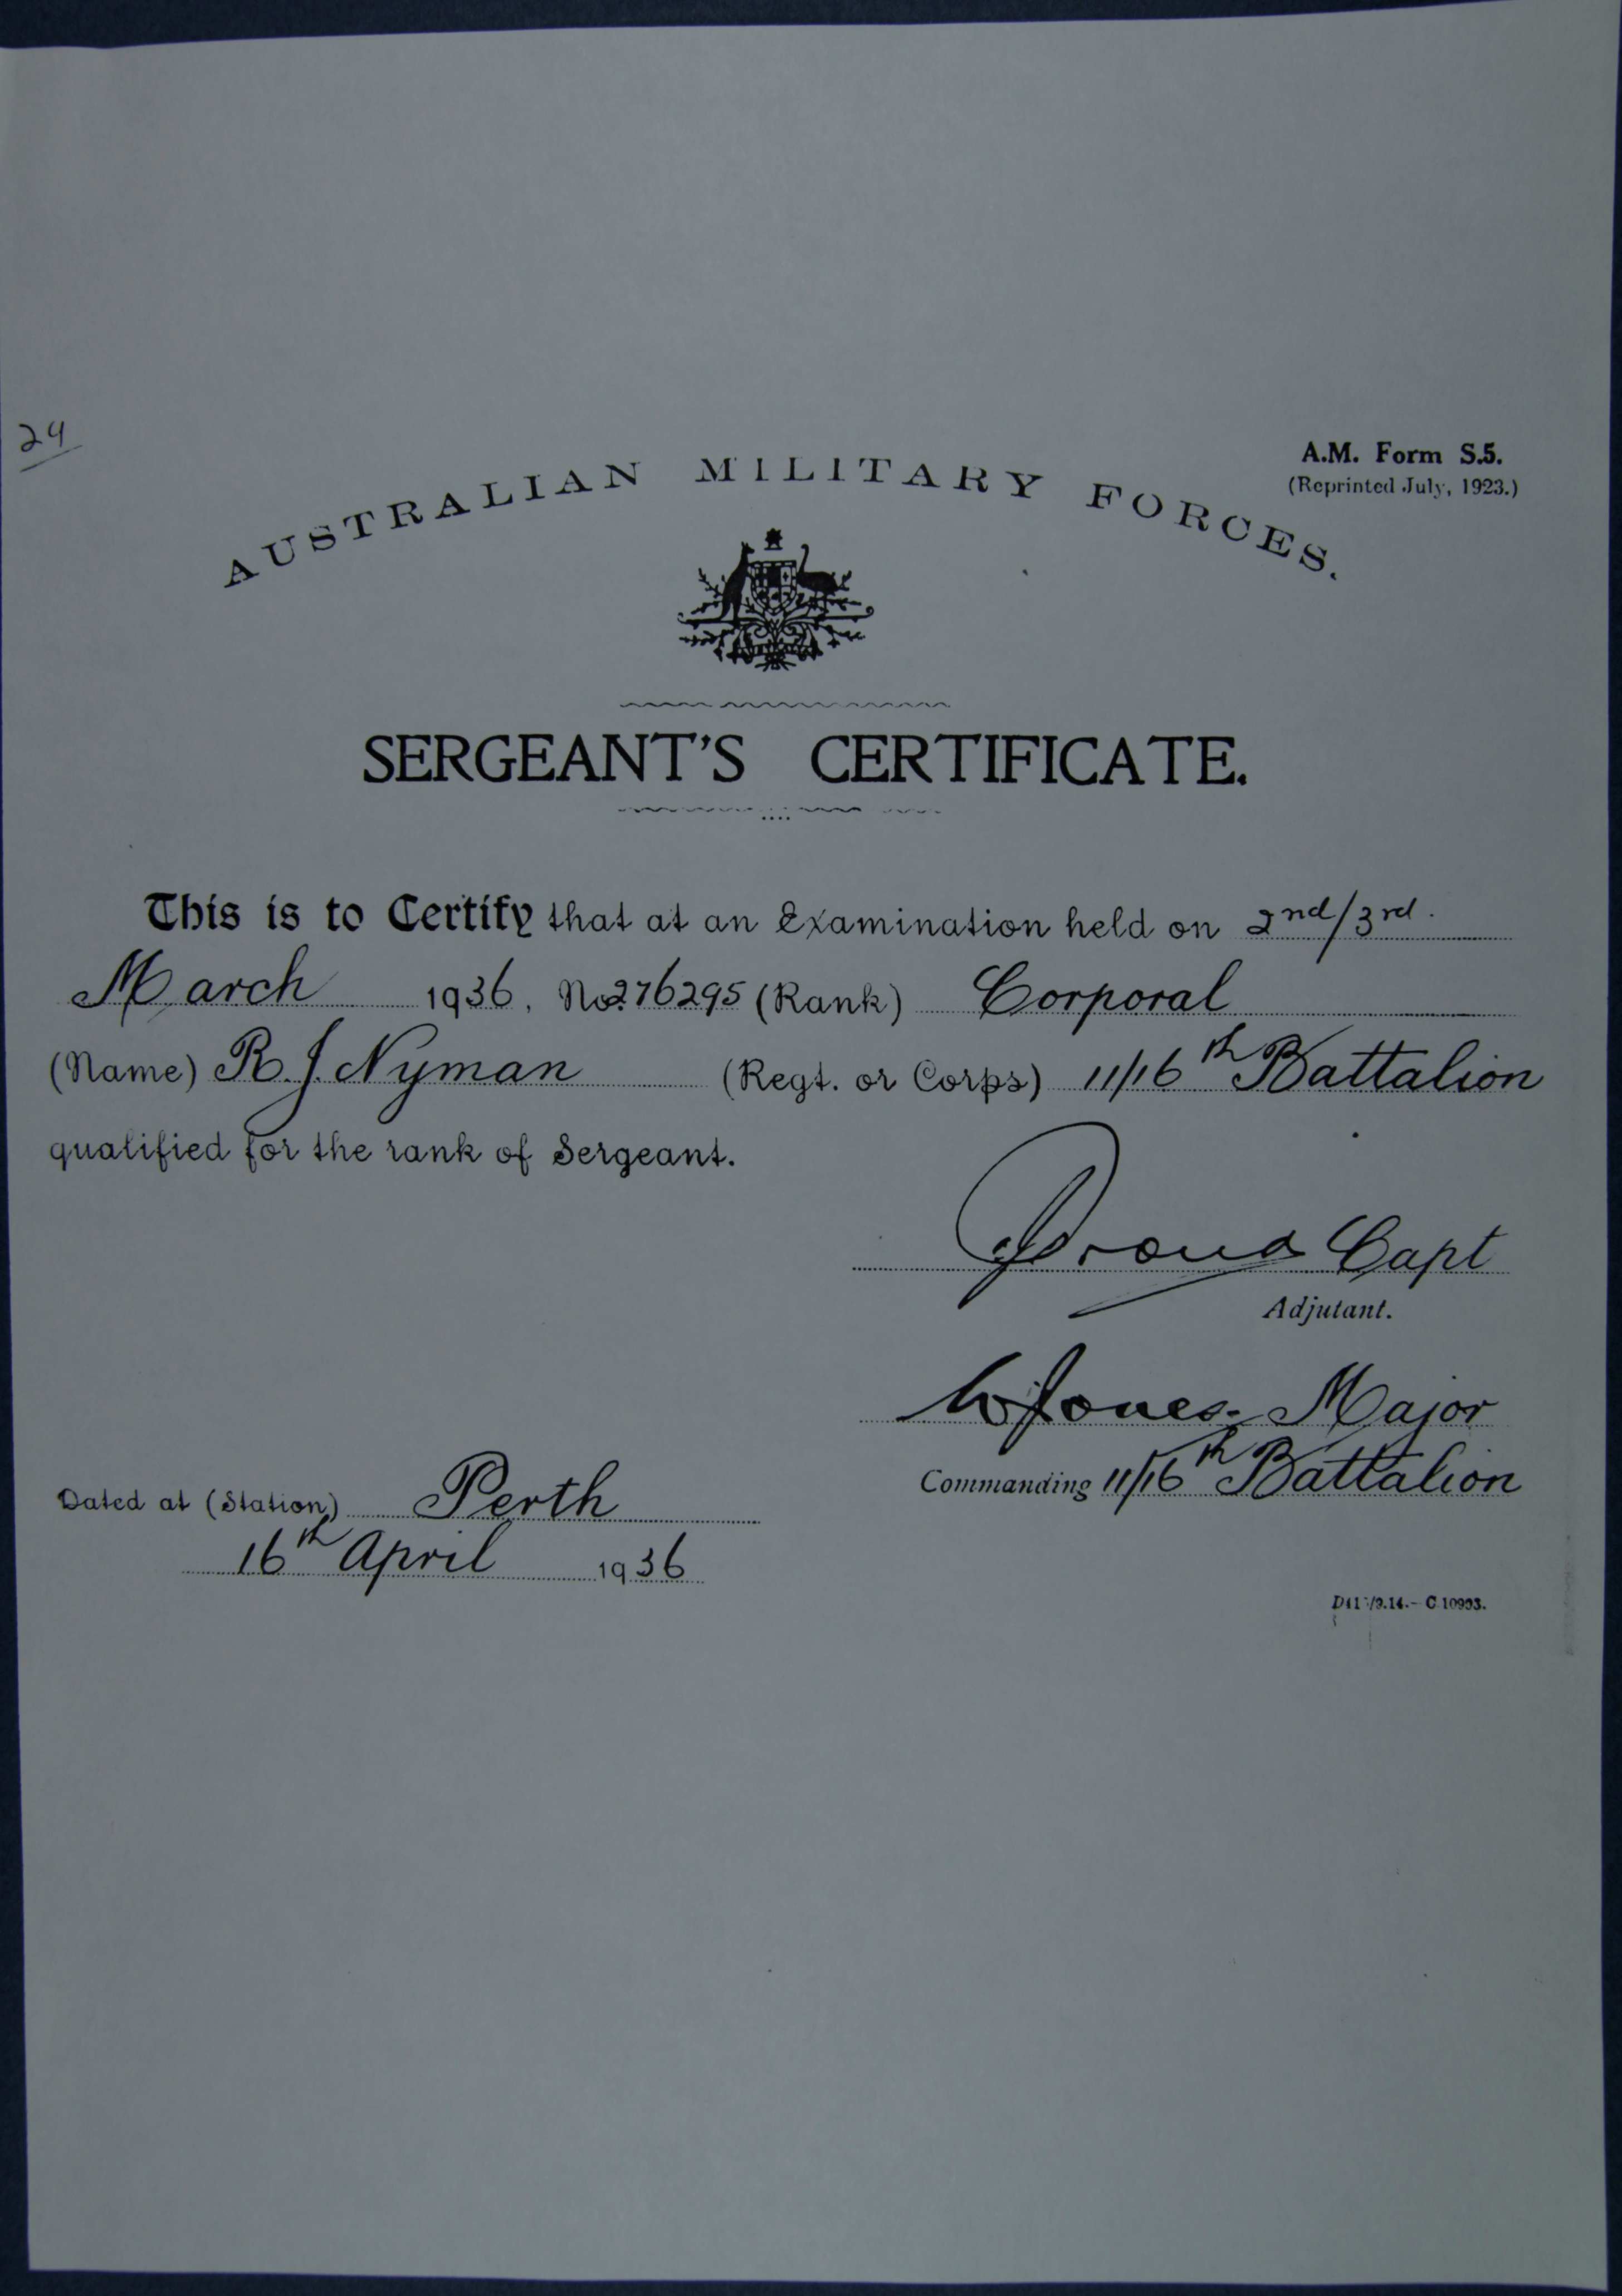 24
A.M. Form S.5.
(Reprinted July, 1923.)
AUSTRALIAN MILITARY FORCES.
SERGEANT'S CERTIFICATE.
This is to Certify that at an Examination held on 2nd/3rd.
March 1936, No. 276295 (Rank) Corporal
(Name) R. J. Nyman (Regt. or Corps) 11/16th Battalion
qualified for the rank of Sergeant.
Capt
Adjutant.
W Jones. Major
Commanding 11/16th Battalion
Dated at (Station) Perth
16th April 1936
C.10993.